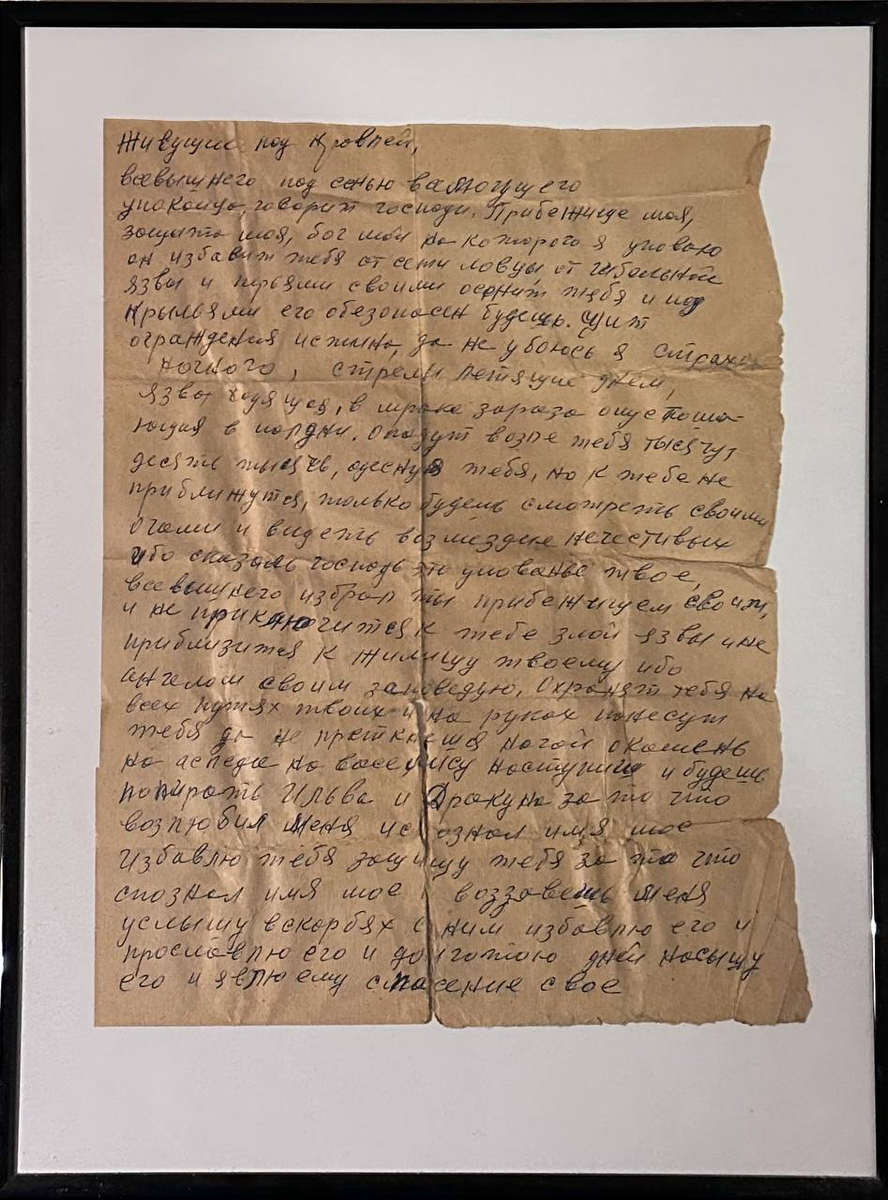 Живущие под кровлей,
всевышнего под сенью валмогущего
упокоица, говорит господи. Прибежище моя,
защита моя, бог мой на которого я уповаю
он избавит тебя от сети ловцы от гибельной
язвы и перьями своими осенит тебя и под
крыльями его обезопасен будешь. Щит
ограждения истина, да не убоюсь я страха
ночного, стрелы летящие днем,
язвы ходящая, в мраке зараза опустоша-
ющая в полдни. Опадут возле тебя тысячу,
десять тысячь, одесную тебя, но к тебе не
приближутся, только будешь смотреть своими
очами и видеть возмездие нечестивых
ибо сказаль господь это упованье твое,
всевышнего избрал ты прибежищем своим,
и не приключится к тебе злой язвы и не
приблизится к жилищу твоему ибо
ангелом своим заповедую. Охранят тебя на
всех путях твоих и на руках понесут
тебя да не преткнешся ногой о камень
на аспеда на василиску наступиш и будешь
попирать Ильва и Дракуна за то что
возлюбил меня и сознал имя мое
Избавлю тебя защищу тебя за то что
спознал имя мое воззовешь меня
услышу вскорбях с ним избавлю его и
прославлю его и долготою дней насыщу
его и явлю ему спасение свое